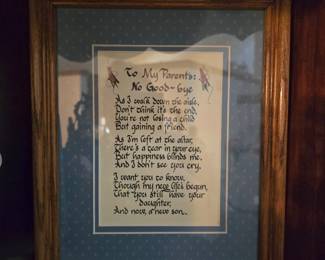 To My Parents:
No Good-bye
As I walk down the aisle,
Don't think it's the end,
You're not losing a child
But gaining a friend.
As I'm left at the altar,
There's a tear in your eye,
But happiness blinds me
And I don't see you cry.
I want you to know,
Though my new life's begun,
That you still have your
daughter,
And now, a new son...